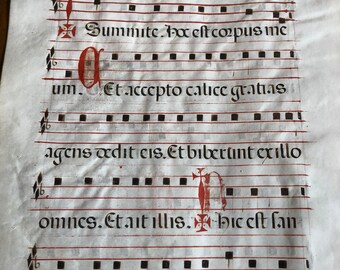 Summite. Hoc est corpus me
um. Et accepto calice gratias
agens dedit eis. Et biberunt ex illo
omnes. Et ait illis. Hic est san